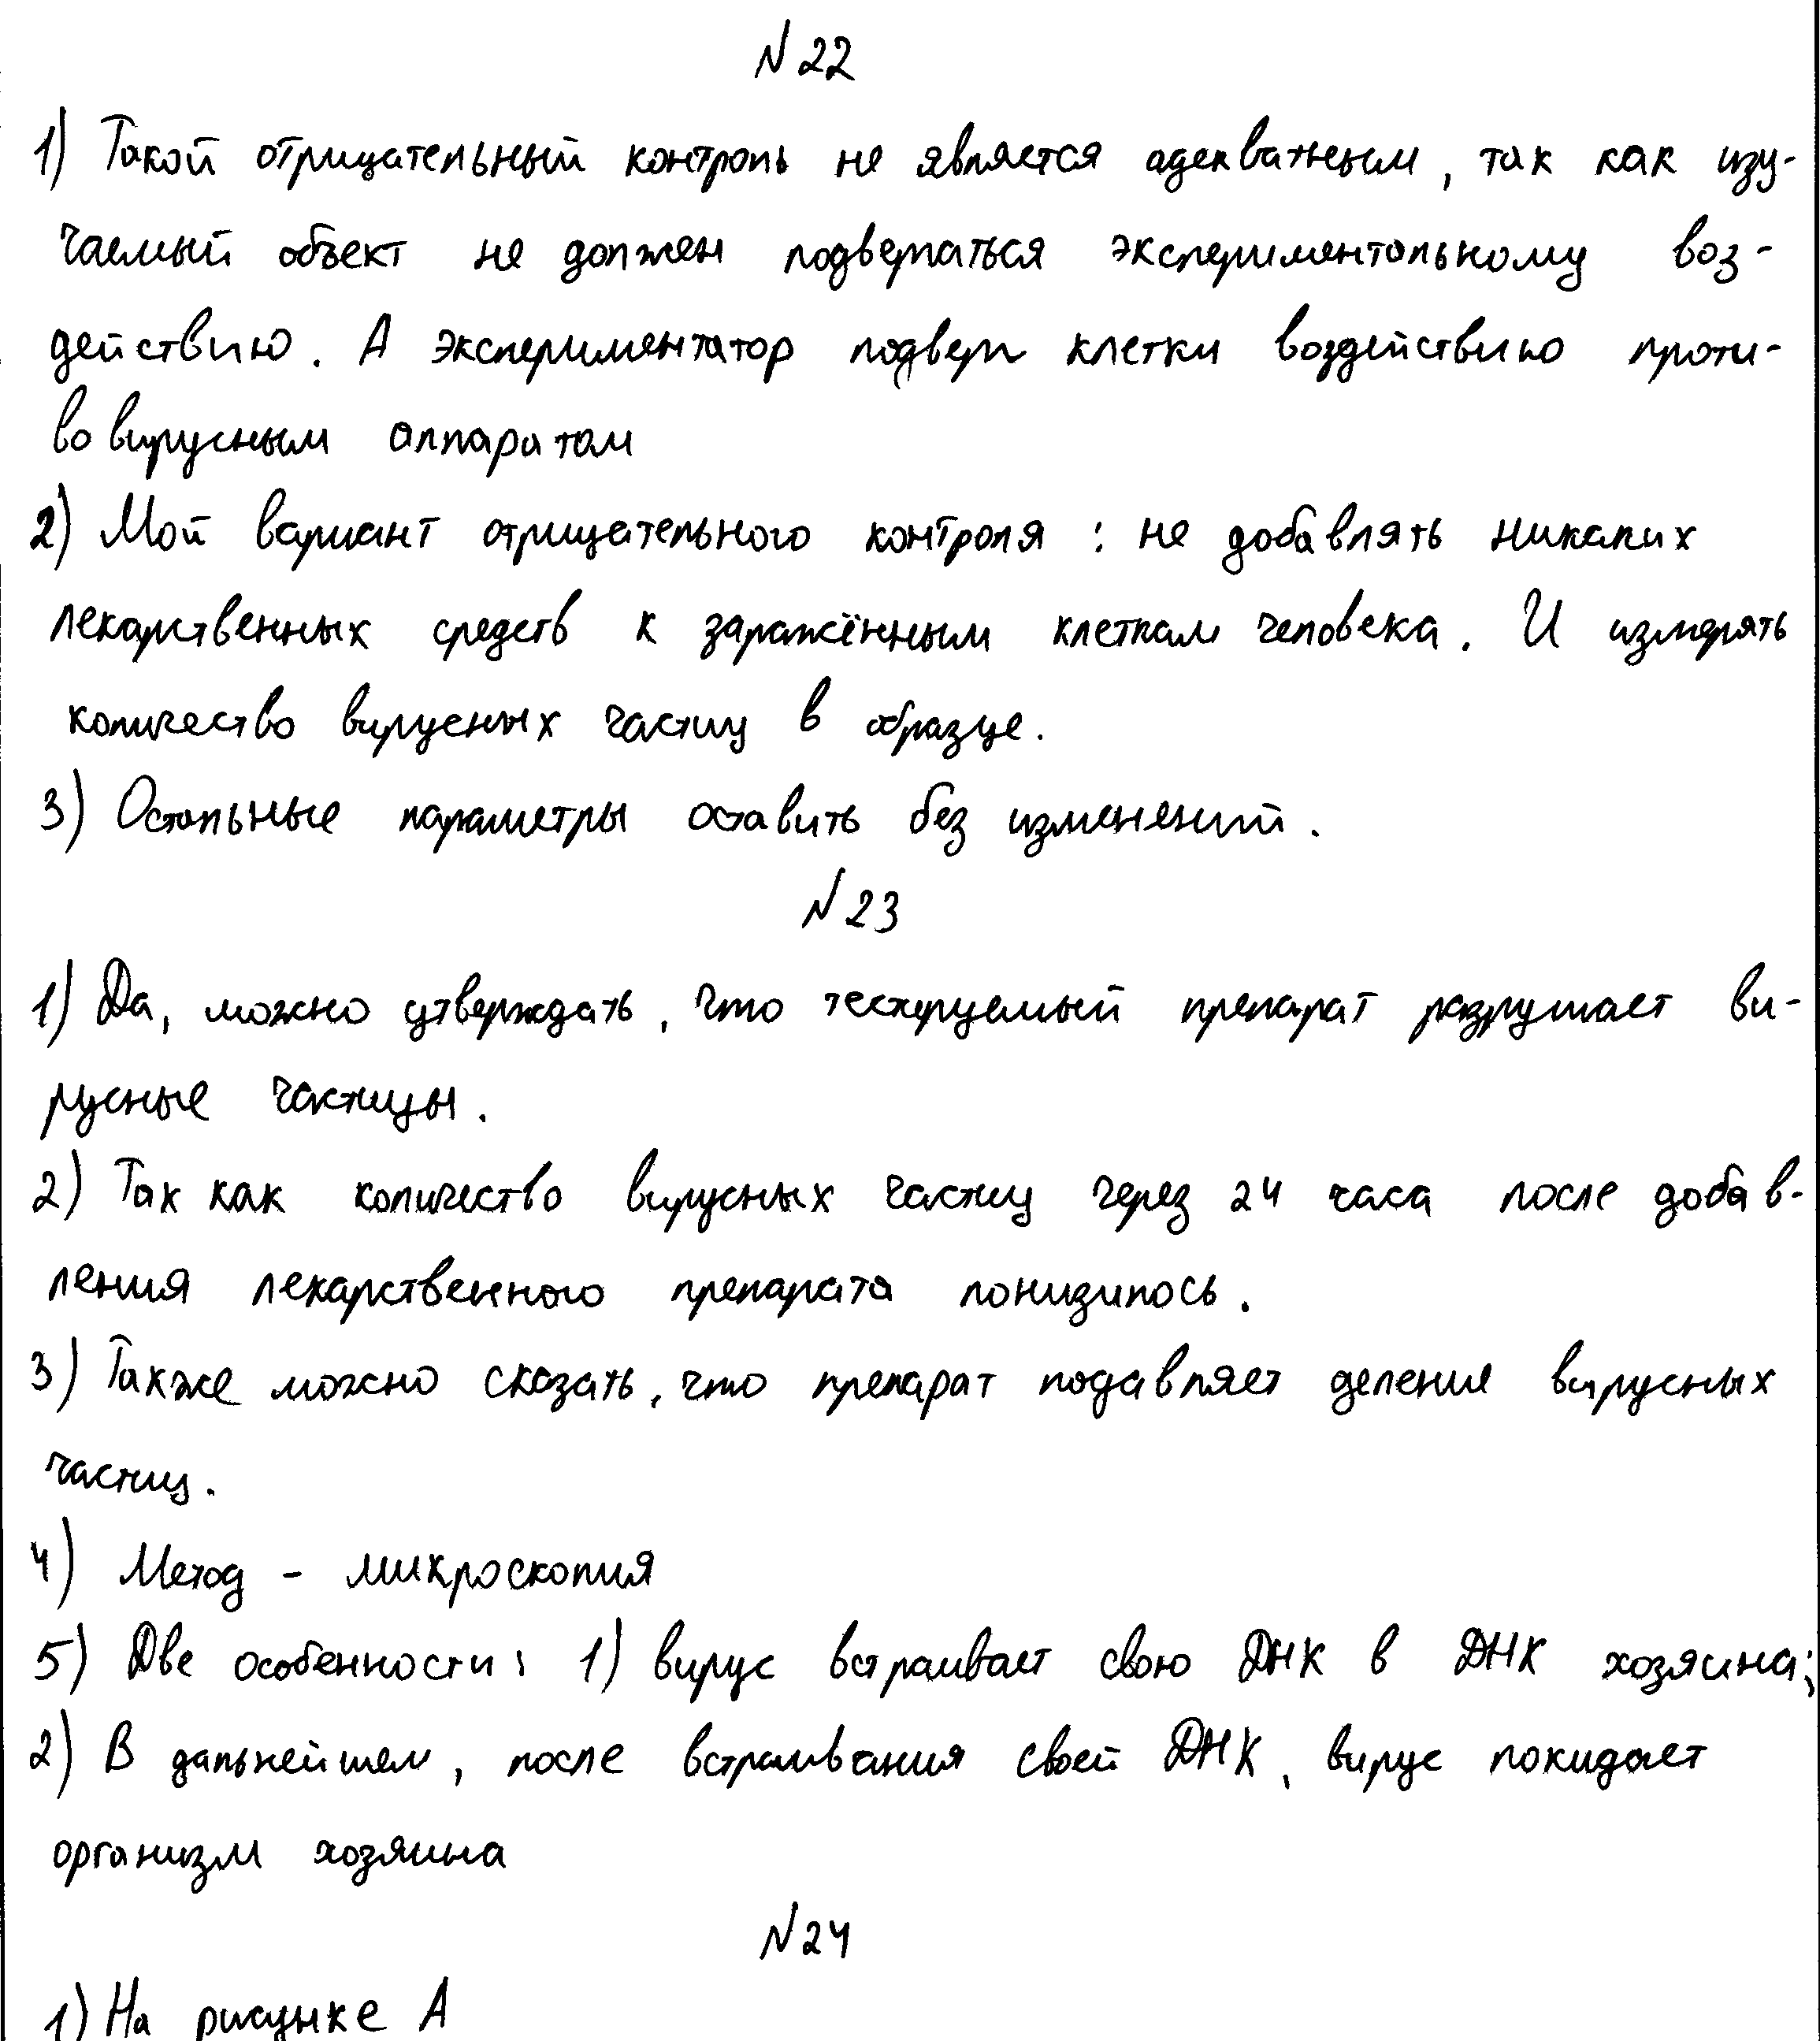 №22
1) Такой отрицательный контроль не является адекватным, так как изу-
чаемый объект не должен подвергаться экспериментальному воз-
действию. А экспериментатор подверг клетки воздействию проти-
вовирусным аппаратом
2) Мой вариант отрицательного контроля: не добавлять никаких
лекарственных средств к заражённым клеткам человека. И измерять
количество вирусных частиц в образце.
3) Остальные параметры оставить без изменений.
№23
1) Да, можно утверждать, что тестируемый препарат разрушает ви-
русные частицы.
2) Так как количество вирусных частиц через 24 часа после добав-
ления лекарственного препарата понизилось.
3) Также можно сказать, что препарат подавляет деление вирусных
частиц.
4) Метод - микроскопия
5) Две особенности: 1) вирус встраивает свою ДНК в ДНК хозяина;
2) В дальнейшем, после встраивания своей ДНК, вирус покидает
организм хозяина
№24
1) На рисунке А